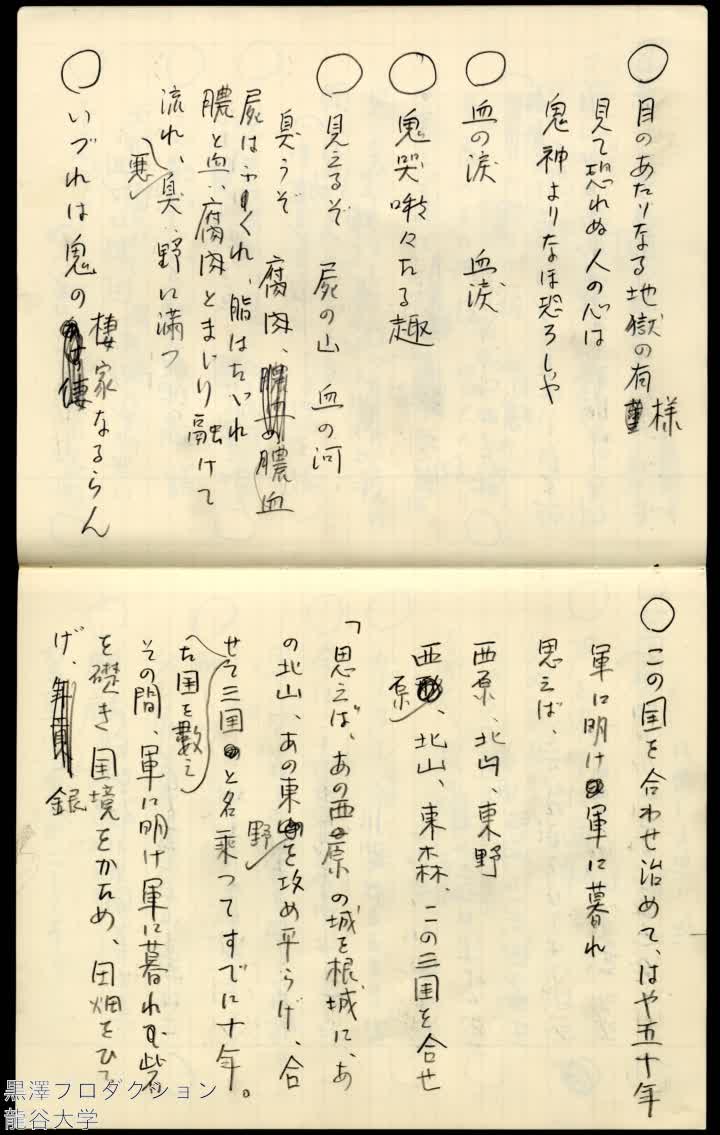 ○ 目のあたりなる地獄の有様
見て恐れぬ人の心は
鬼神よりなほ恐ろしや
○ 血の涙 血涙
○ 鬼哭啾々たる趣
○ 見えるぞ 屍の山 血の河
臭うぞ 腐肉、膿血
屍はふくれ、脂はたれ
膿と血、腐肉とまじり融けて
流れ、悪臭、野に満つ
○ いづれは鬼の棲家なるらん
○ この国を合わせ治めて、はや五十年
軍に明け軍に暮れ
思えば、
西原、北山、東野
西原、北山、東森、この三国を合せ
「思えば、あの西原の城を根城に、あ
の北山、あの東野を攻め平らげ、合
せて三国と名乗つてすでに十年。
右国を數え
その間、軍に明け軍に暮れ
を礎き国境をかため、田畑をひろ
げ、銀
黒澤プロダクション
龍谷大学